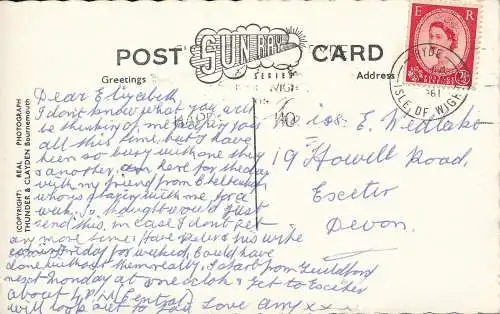 POST CARD
SUNRAY
SERIES
Greetings
Address
E R
RYDE
ISLE OF WIGHT
HAPPY HO
(COPYRIGHT) REAL PHOTOGRAPH
THUNDER & CLAYDEN Bournemouth
Dear Elizabeth
I don't know what you will
be thinking of me
all this time, but I have
been so busy with one thing
& another, am here for the day
with my friend from Cheltenham
who is staying with me for a
week, so thought would just
send this, in case I don't get
any more time. Have Peter & his wife
day for weekend, Could have
done without them really, I start from Guildford
next Monday at one oclock & get to Exeter
about (Central)
will look out for you Love Amy xxx
Miss E. Westlake
19 Howell Road,
Exeter
Devon.